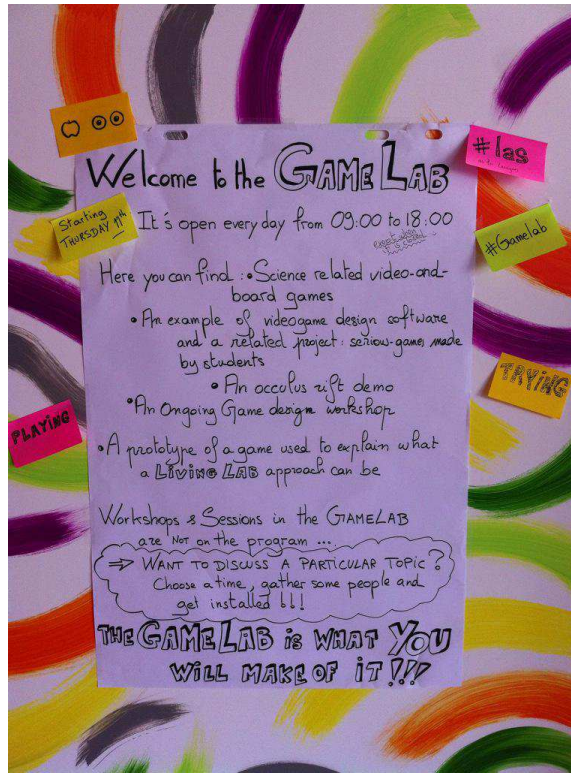 #las
Welcome to the GAME LAB
Starting
THURSDAY 11th
It's open every day from 09:00 to 18:00
#Gamelab
Here you can find : • Science related video-and-
board games
• An example of videogame design software
and a related project: serious-games made
by students
• An occulus rift demo
TRYING
• An Ongoing Game design workshop
PLAYING
• A prototype of a game used to explain what
a LIVING LAB approach can be
Workshops & Sessions in the GAMELAB
are NOT on the program ...
⇒ WANT TO DISCUSS A PARTICULAR TOPIC?
Choose a time, gather some people and
get installed !!!
THE GAME LAB is WHAT YOU
WILL MAKE OF iT !!!